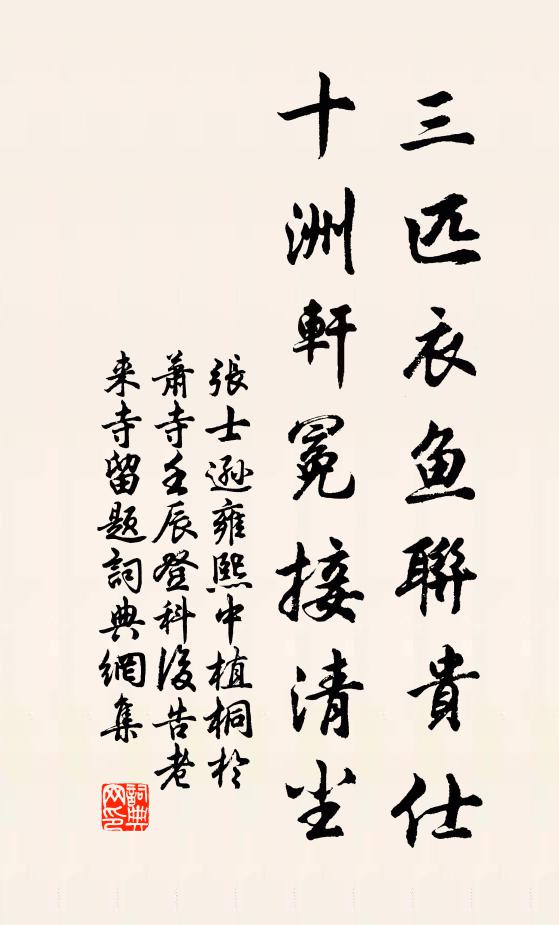 三匹衣鱼聯貴仕
十洲軒冕接清尘
張士遜雍熙中植桐於
蕭寺壬辰登科後告老
来寺留题詞典網集
詞典网印